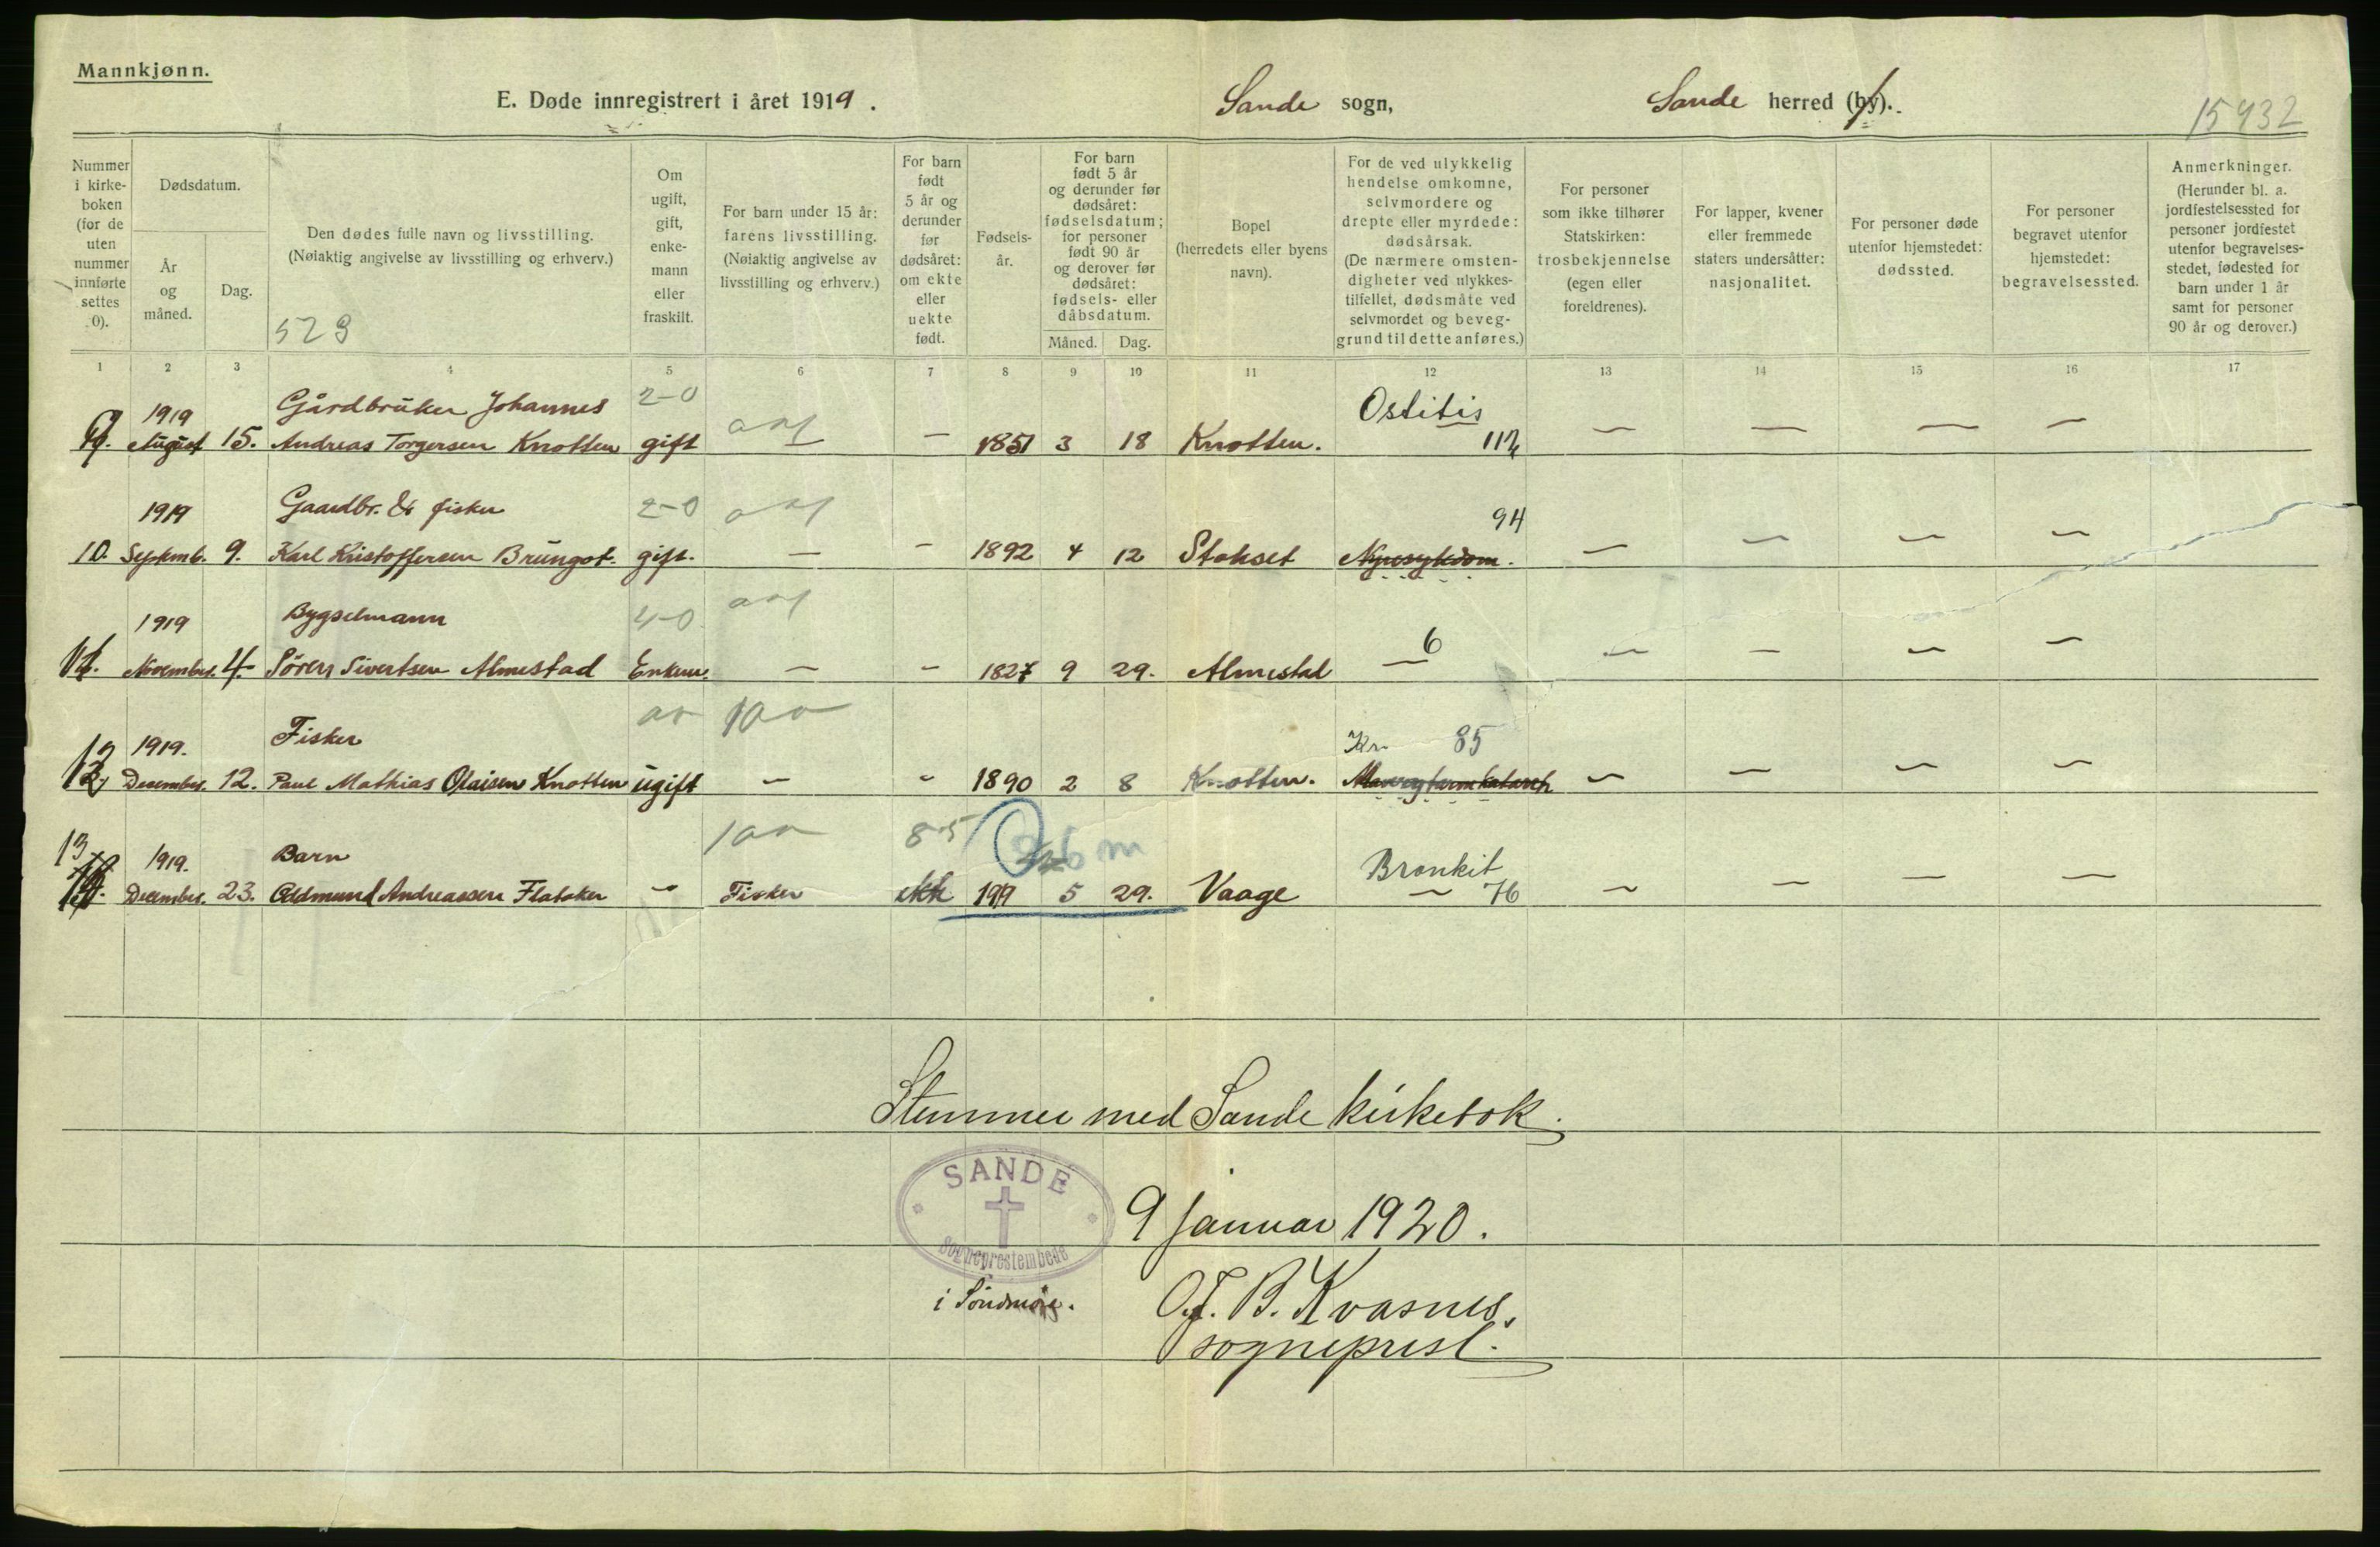 Mannkjønn.
E. Døde innregistrert i året 1919. Sande sogn, Sande herred (by).
15432
Nummer i kirke-boken (for de uten nummer innførte settes 0).
Dødsdatum.
År og måned.
Dag.
Den dødes fulle navn og livsstilling.
(Nøiaktig angivelse av livsstilling og erhverv.)
523
Om ugift, gift, enke-mann eller fraskilt.
For barn under 15 år: farens livsstilling. (Nøiaktig angivelse av livsstilling og erhverv.)
For barn født 5 år og derunder før dødsåret: om ekte eller uekte født.
Fødsels-år.
For barn født 5 år og derunder før dødsåret: fødselsdatum; for personer født 90 år og derover før dødsåret: fødsels- eller dåbsdatum.
Måned. Dag.
Bopel (herredets eller byens navn).
For de ved ulykkelig hendelse omkomne, selvmordere og drepte eller myrdede: dødsårsak. (De nærmere omsten-digheter ved ulykkes-tilfellet, dødsmåte ved selvmordet og beveg-grund til dette anføres.)
For personer som ikke tilhører Statskirken: trosbekjennelse (egen eller foreldrenes).
For lapper, kvener eller fremmede staters undersåtter: nasjonalitet.
For personer døde utenfor hjemstedet: dødssted.
For personer begravet utenfor hjemstedet: begravelsessted.
Anmerkninger. (Herunder bl. a. jordfestelsessted for personer jordfestet utenfor begravelses-stedet, fødested for barn under 1 år samt for personer 90 år og derover.)
1 2 3 4 5 6 7 8 9 10 11 12 13 14 15 16 17
1919 Gårdbruker Johannes 2-0 Ostitis
9. August 15. Andreas Torgersen Knotten gift — 1851 3 18 Knotten. 112 — — — —
1919 Gaardbr. & fisker 2-0 94
10. Septemb. 9. Karl Kristoffersen Brungot. gift. — — 1892 4 12 Stokset Nyresykdom. — — — —
1919 Bygselmann 4-0 6
11. November. 4. Søren Sivertsen Almestad Enkem. — — 1827 9 29. Almestad — — — — —
1919. Fisker Kr. 85
12 December. 12. Paul Mathias Olaisen Knotten ugift — — 1890 2 8 Knotten. — — — —
13 1919. Barn 8-5 6 m Bronkit
December. 23. Oddmund Andreassen Flatøker — Fisker ekte 1919 5 29. Vaage — 76 — — — —
Stemmer med Sande kirkebok.
SANDE
Sogneprestembede
i Søndmøre.
9 januar 1920.
O. J. B. Kvasnes,
sogneprest.